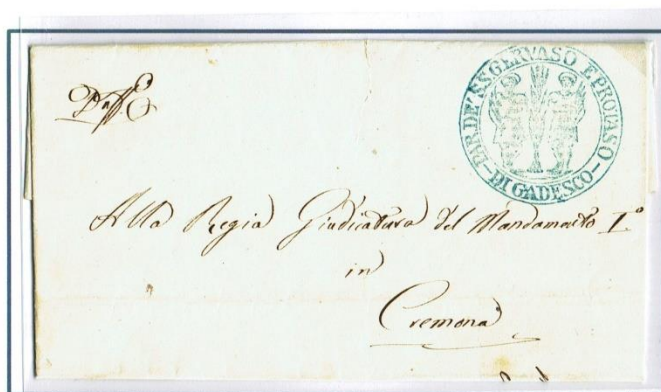 PAR. DE' SS. GERVASO E PROTASO
- DI GADESCO -
Alla Regia Giudicatura del Mandamento I.°
in
Cremona